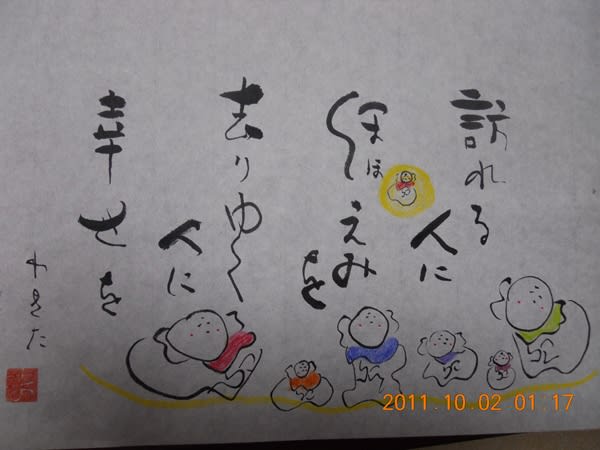 訪れる
人に
ほほえみを
去りゆく
人に
幸せを
2011.10.02 01:17